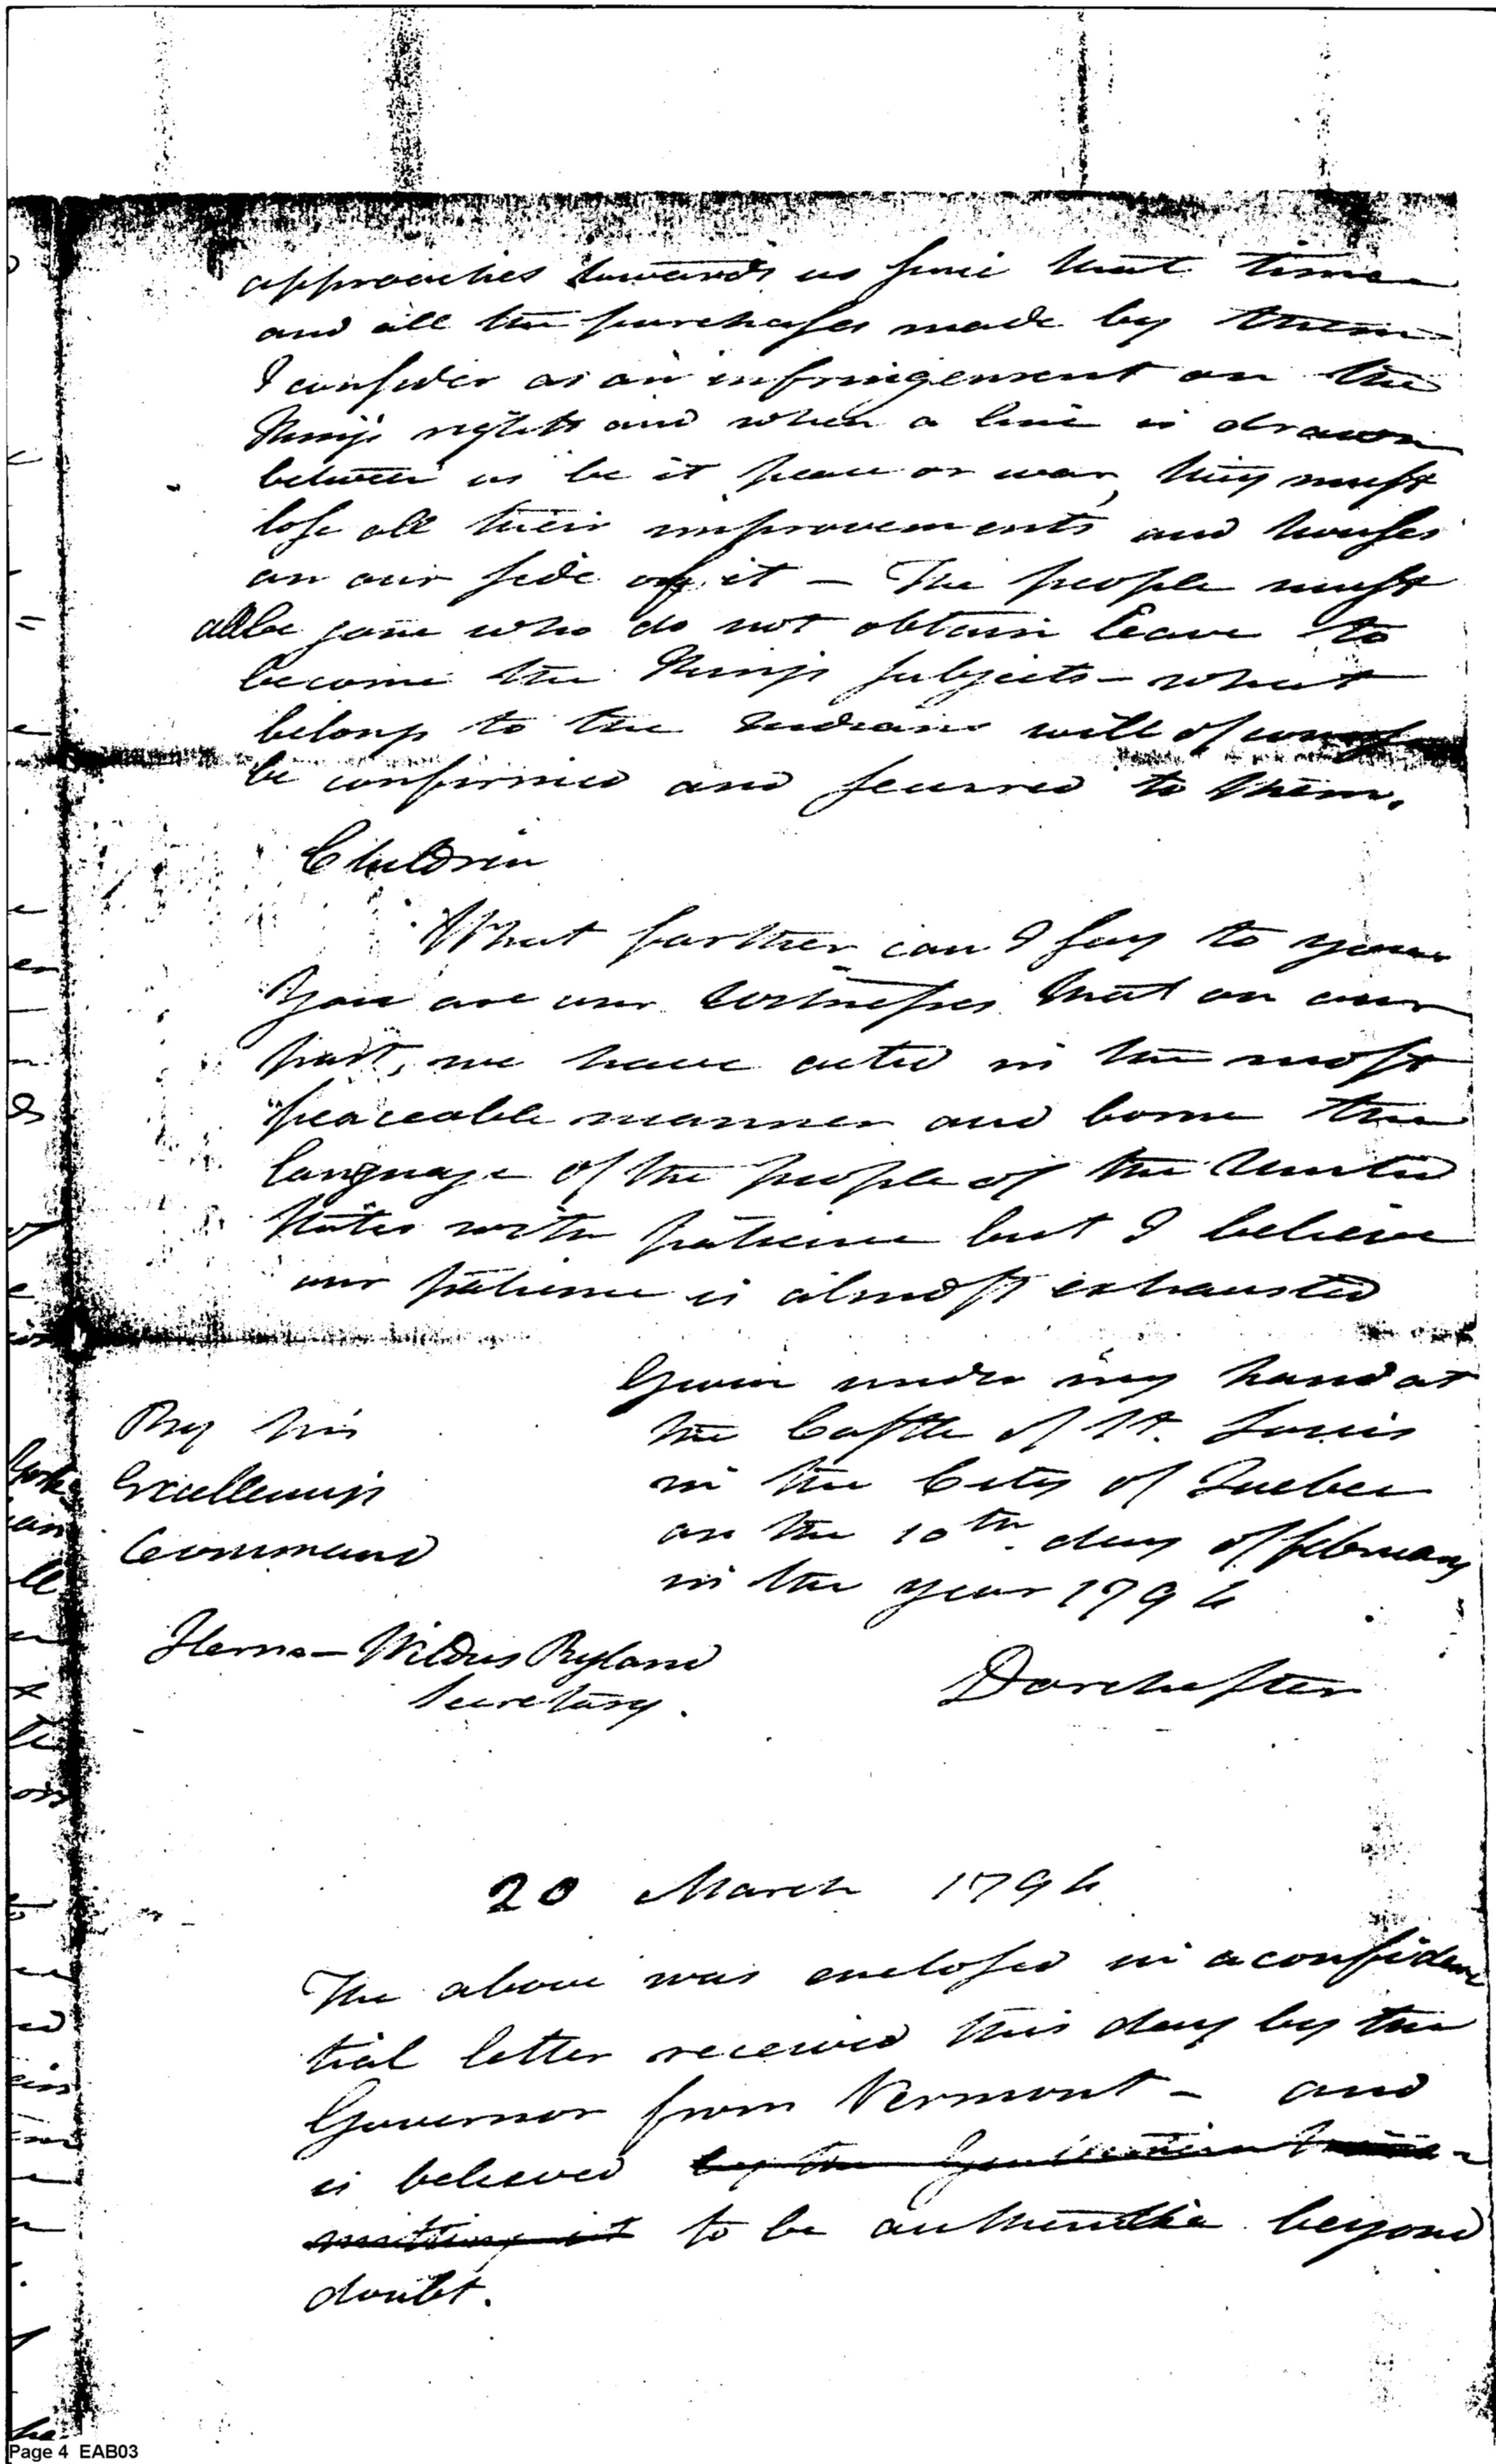 approaches towards us since that time
and all the purchases made by them
I consider as an infringement on the
Kings rights and when a line is drawn
between us be it peace or war, they must
lose all their improvements and houses
on our side of it — The people must
all be gone who do not obtain leave to
become the Kings subjects — what
belongs to the Indians will of course
be confirmed and secured to them.
Children
What farther can I say to you
You are our Witnesses that on our
part, we have acted in the most
peaceable manner and borne the
language of the people of the United
States with patience but I believe
our patience is almost exhausted
Given under my hand at
the Castle of St. Louis
in the City of Quebec
on the 10th day of february
in the year 1794
By his
Excellencys
Command
Herma— Wildus Ryland
Secretary.
Dorchester
20 March 1794
The above was enclosed in a confiden
tial letter received this day by the
Governor from Vermont — and
is believed by the Gentleman trans-
mitting it to be authentic beyond
doubt.
Page 4 EAB03